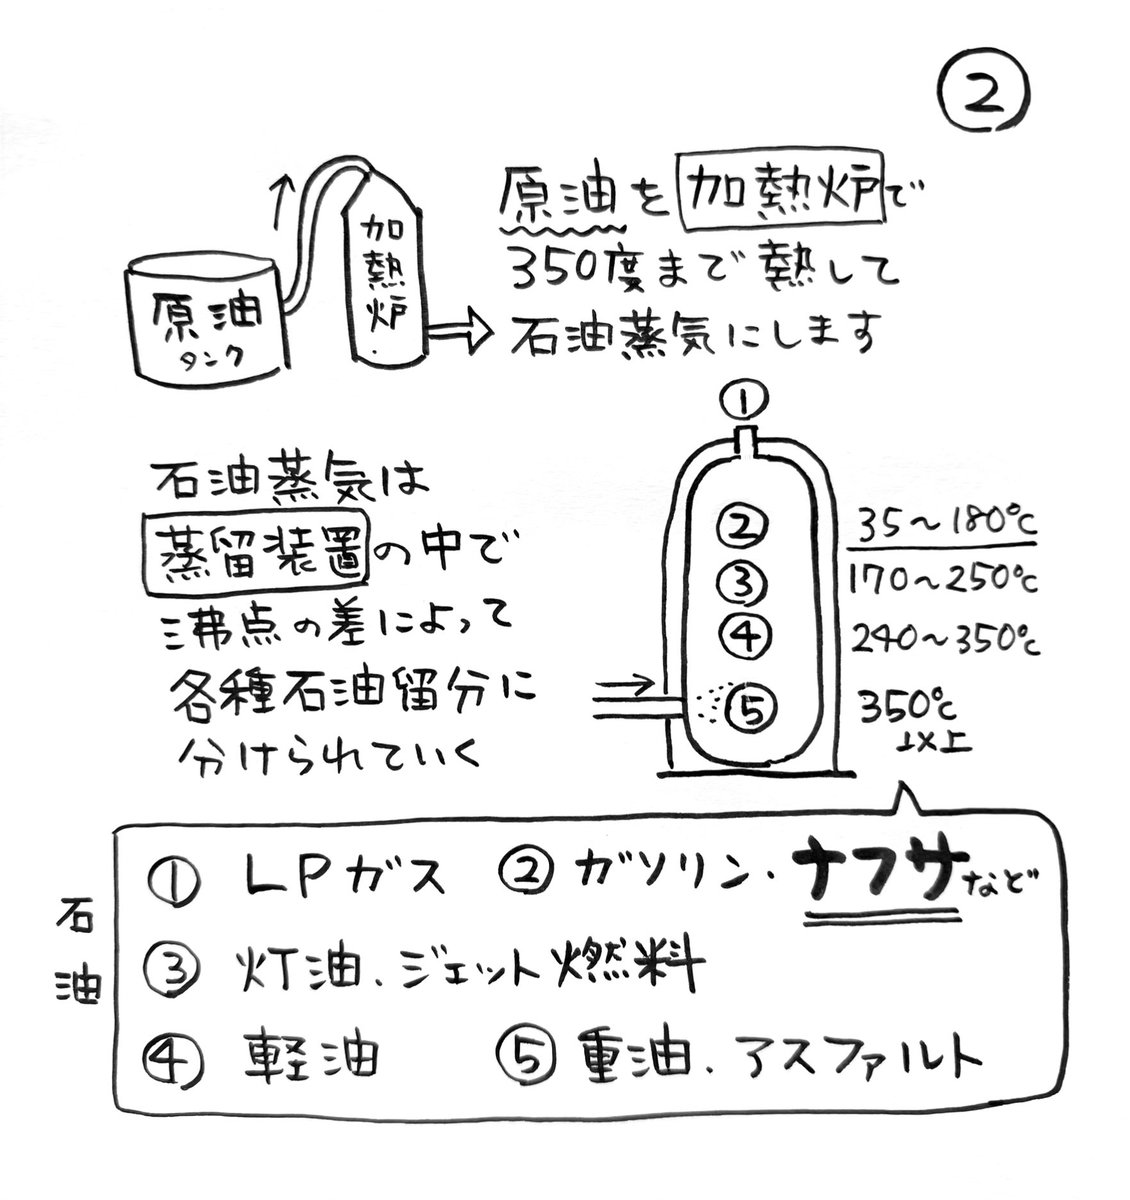 ②
原油を加熱炉で
350度まで熱して
石油蒸気にします
加熱炉
原油
タンク
石油蒸気は
蒸留装置の中で
沸点の差によって
各種石油留分に
分けられていく
①
② 35〜180℃
③ 170〜250℃
④ 240〜350℃
⑤ 350℃
以上
石油
① LPガス ② ガソリン・ナフサなど
③ 灯油、ジェット燃料
④ 軽油 ⑤ 重油、アスファルト